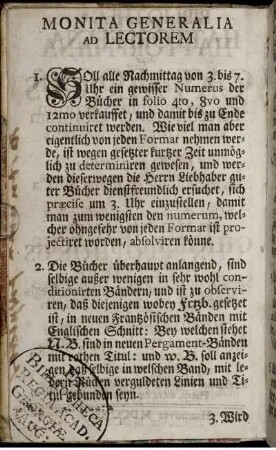 MONITA GENERALIA
AD LECTOREM
1. SOll alle Nachmittag von 3. bis 7.
Uhr ein gewisser Numerus der
Bücher in folio 4to, 8vo und
12mo verkaufft, und damit bis zu Ende
continuiret werden. Wie viel man aber
eigentlich von jeden Format nehmen wer-
de, ist wegen gesetzter kurtzer Zeit unmög-
lich zu determiniren gewesen, und wer-
den dieserwegen die Herrn Liebhaber gu-
ter Bücher dienstfreundlich ersuchet, sich
præcise um 3. Uhr einzustellen, damit
man zum wenigsten den numerum, wel-
cher ohngefehr von jeden Format ist pro-
jectiret worden, absolviren könne.
2. Die Bücher überhaupt anlangend, sind
selbige außer wenigen in sehr wohl con-
ditionirten Bänden, und ist zu observi-
ren, daß diejenigen wobey Frtzb. gesetzet
ist, in neuen Frantzösischen Bänden mit
Englischen Schnitt: Bey welchen stehet
N. B. sind in neuen Pergament-Bänden
mit rothen Titul: und w. B. soll anzei-
gen, daß selbige in welschen Band, mit le-
dern Rücken verguldeten Linien und Ti-
tul gebunden seyn.
3. Wird
BIBLIOTHECA
ACAD.
GEORGIÆ
AUG.